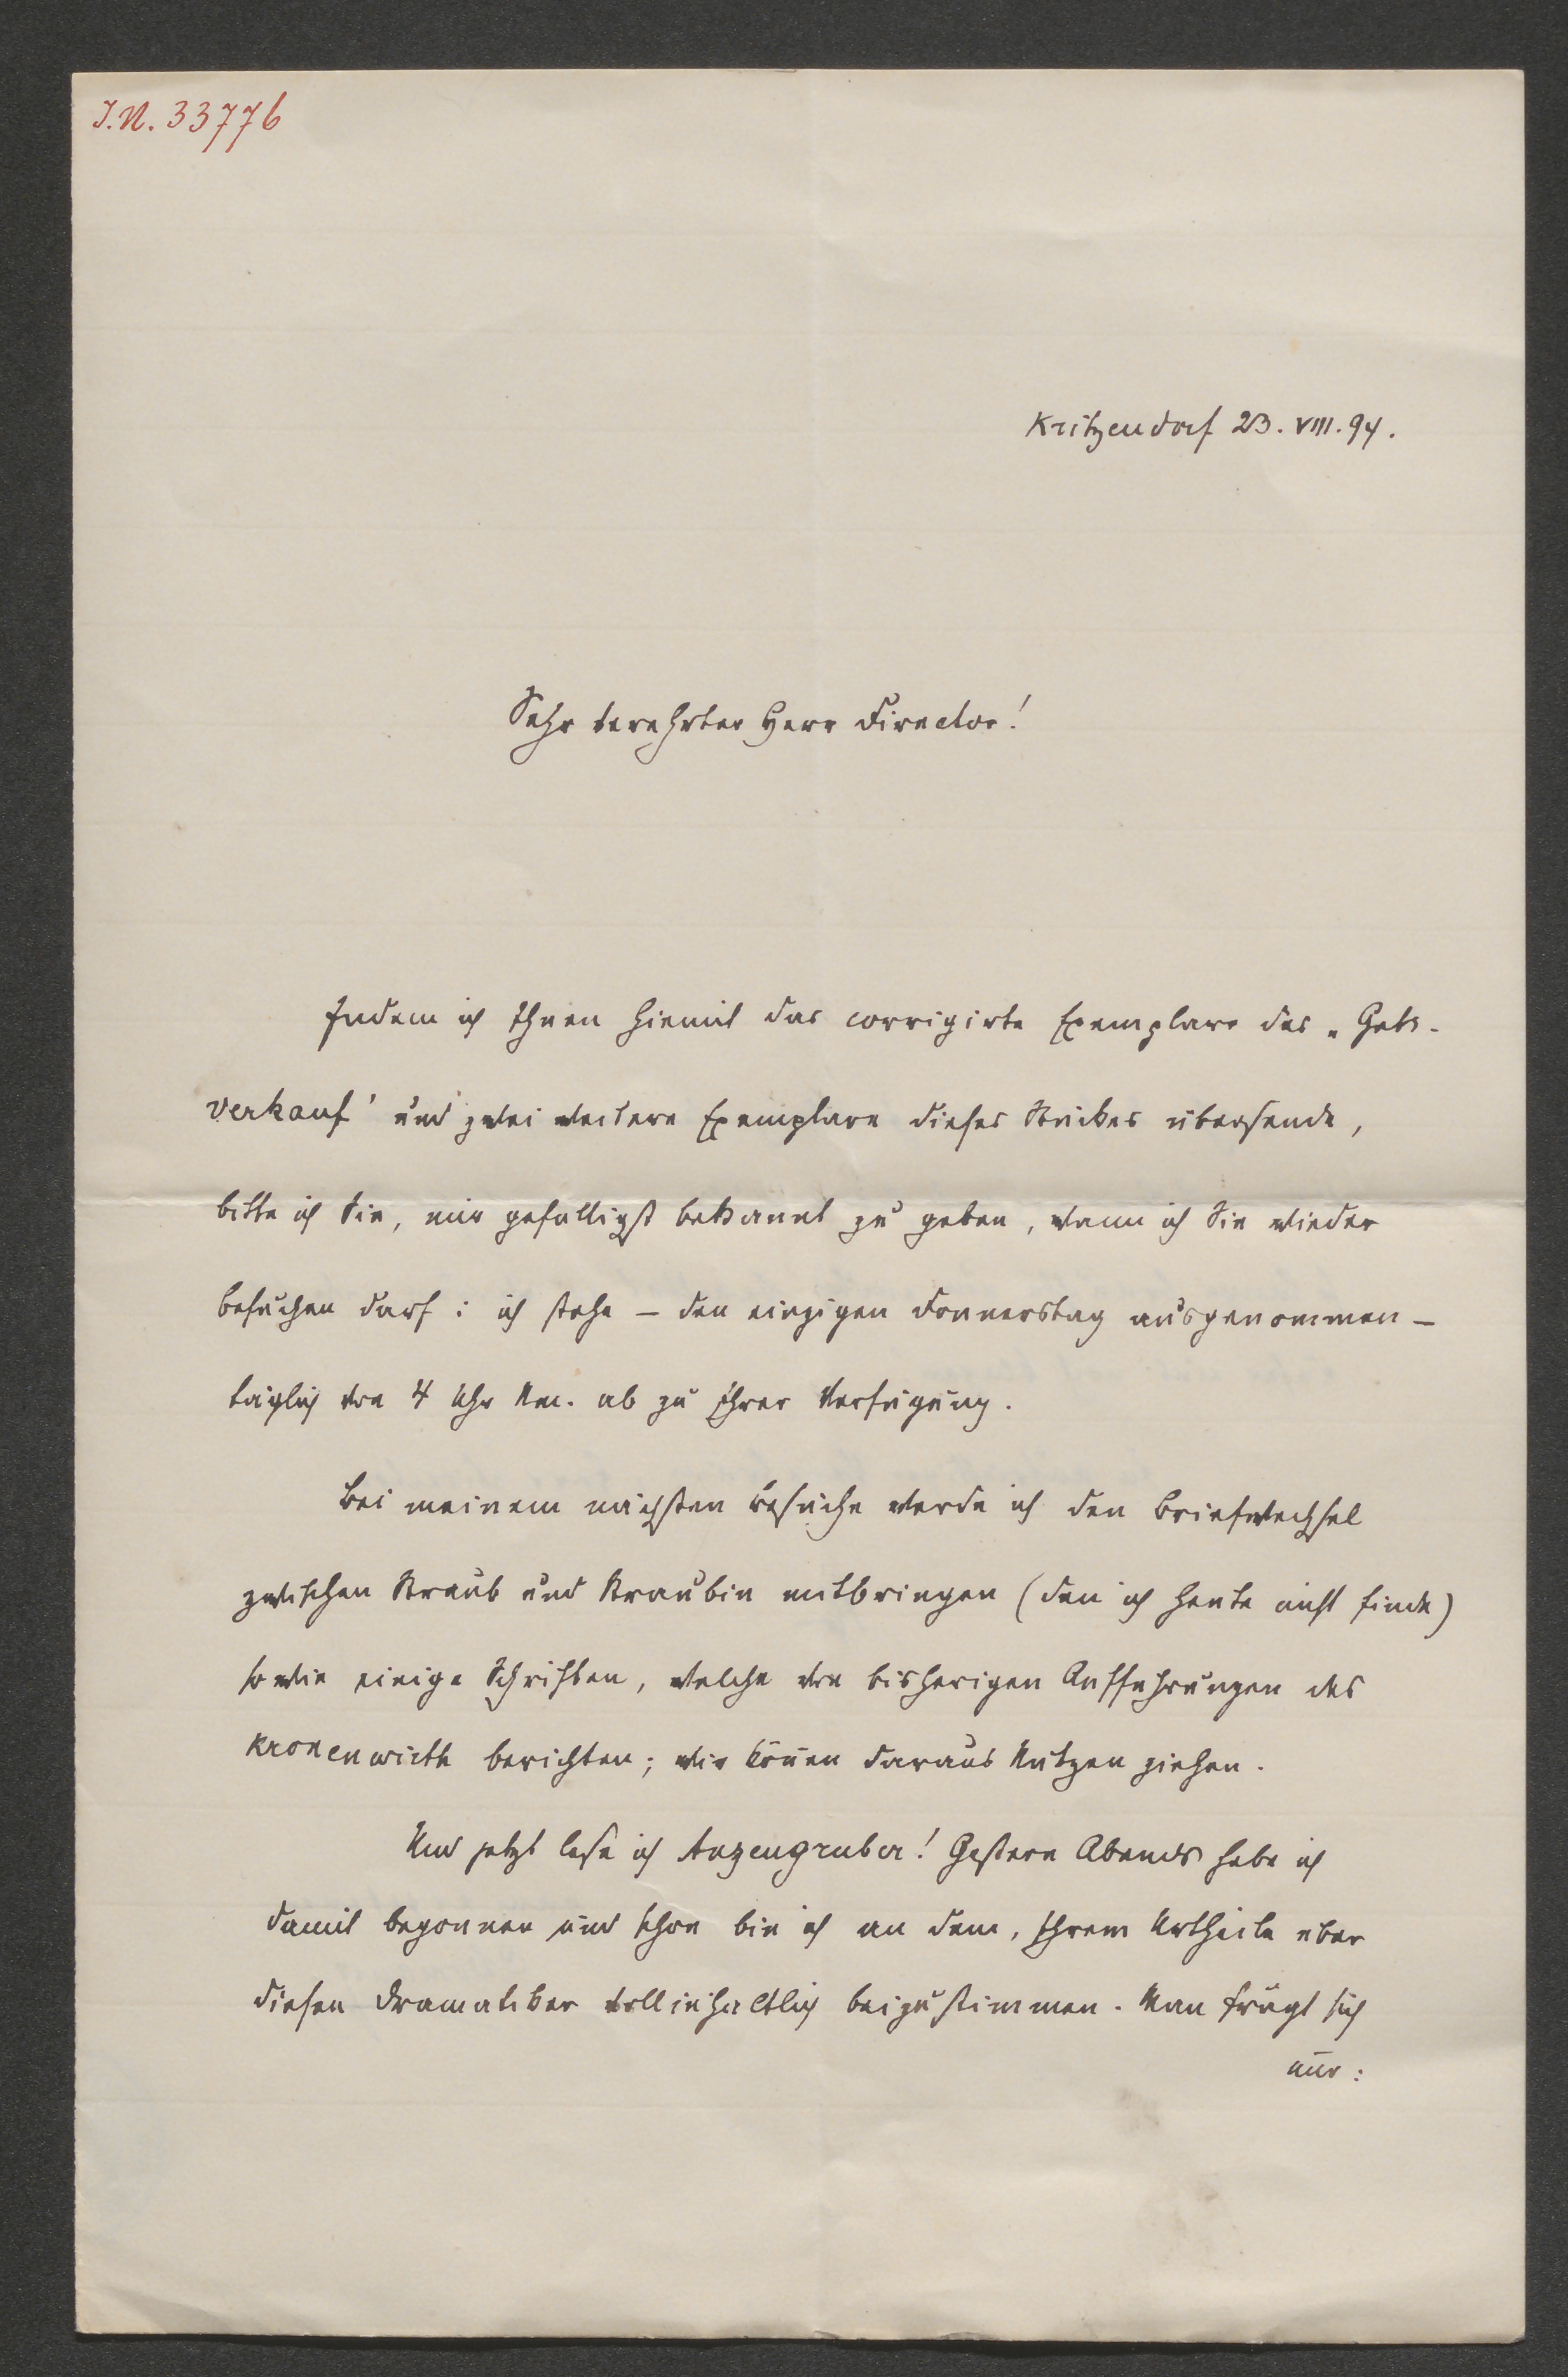 J.N. 33776
Kritzendorf 23. VIII. 94.
Sehr verehrter Herr Director!
Indem ich Ihnen hiemit das corrigirte Exemplare des „Guts-
verkauf' und zwei weitere Exemplare dieses Stückes übersende,
bitte ich Sie, mir gefälligst bekannt zu geben, wann ich Sie wieder
besuchen darf: ich stehe – den einzigen Donnerstag ausgenommen –
täglich von 4 Uhr Nm. ab zu Ihrer Verfügung.
Bei meinem nächsten Besuche werde ich den Briefwechsel
zwischen Straub und Straubin mitbringen (den ich heute nicht finde)
sowie einige Schriften, welche von bisherigen Aufführungen des
Kronenwirth berichten; wir können daraus Nutzen ziehen.
Und jetzt lese ich Anzengruber! Gestern Abends habe ich
damit begonnen und schon bin ich an dem, Ihrem Urtheile über
diesen Dramatiker vollinhaltlich beizustimmen. Man frägt sich
nur: